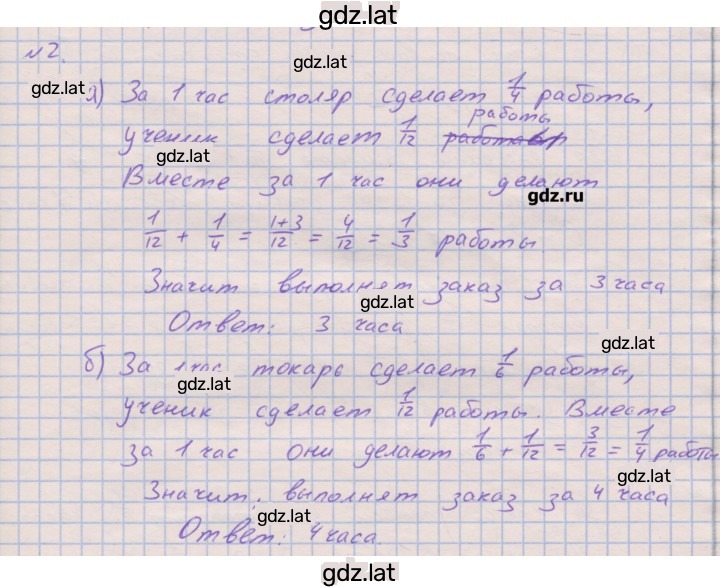 gdz.lat
№2.
gdz.lat
а) За 1 час столяр сделает 1/4 работы,
работы
ученик сделает 1/12
gdz.lat
Вместе за 1 час они делают
gdz.ru
1/12 + 1/4 = 1+3/12 = 4/12 = 1/3 работы
Значит выполнят заказ за 3 часа
gdz.lat
Ответ: 3 часа
gdz.lat
б) За 1 час токарь сделает 1/6 работы,
gdz.lat
ученик сделает 1/12 работы. Вместе
gdz.lat
за 1 час они делают 1/6 + 1/12 = 3/12 = 1/4 работы
gdz.lat
Значит, выполнят заказ за 4 часа
gdz.lat
Ответ: 4 часа.
gdz.lat